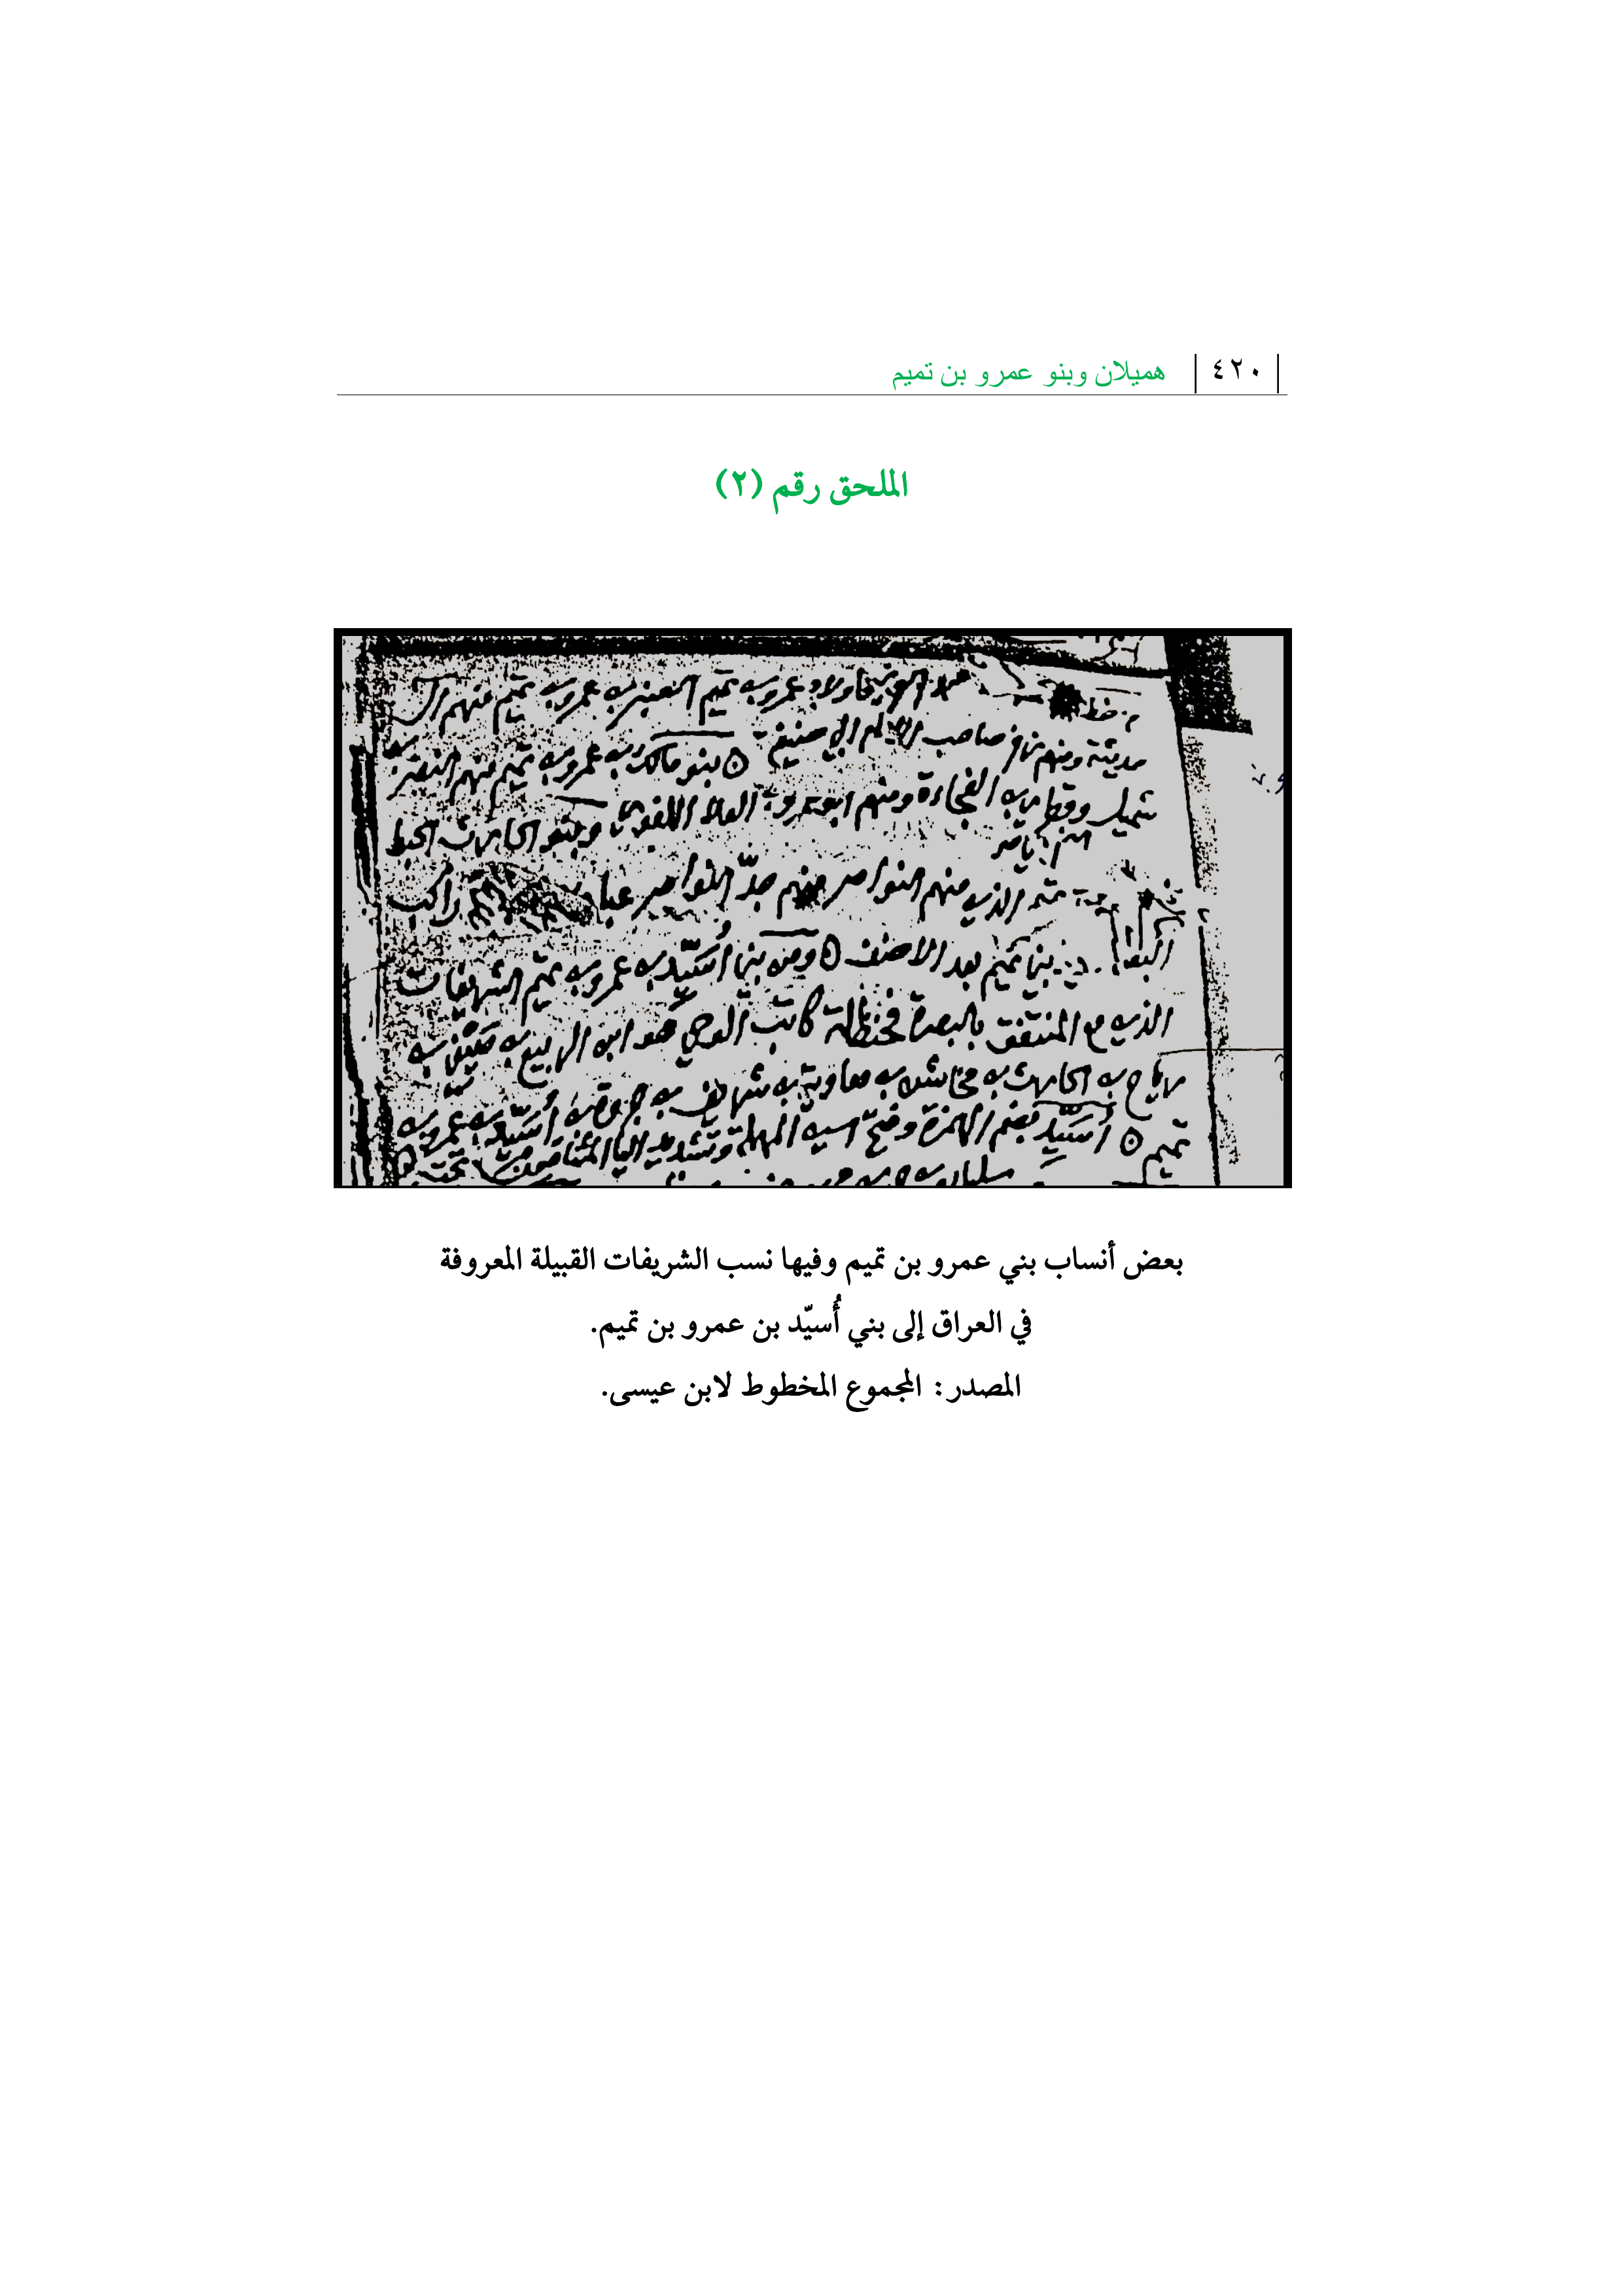 ٤٢٠ هميلان وبنو عمرو بن تميم
الملحق رقم (٢)
فاولاد عمرو بن تميم العنبر بن عمرو بن تميم منهم
ومنهم زفر صاحب الامام ابي حنيفة ه بنو مالك بن عمرو بن تميم منهم النضر بن
شميل وقطري بن الفجاءة ومنهم ابو عمرو بن العلا اللغوي وبنو الحارث الحبط
الذي منهم النواصر منهم جدّ النواصر عباد
بني تميم بعد الاحنف ه ومن بني أُسَيِّد بن عمرو بن تميم الشريفات
الذي مع المنتفق بالبصرة فحنظلة كاتب الوحي هو ابن الربيع بن صيفي بن
رياح بن الحارث بن مخاشن بن معاوية بن شريف بن جروة بن أُسَيِّد بن عمرو بن
تميم ه أُسَيِّد بضم الهمزة وفتح السين المهملة وتشديد اليا المثناة من تحت
بعض أنساب بني عمرو بن تميم وفيها نسب الشريفات القبيلة المعروفة
في العراق إلى بني أُسيّد بن عمرو بن تميم.
المصدر: المجموع المخطوط لابن عيسى.